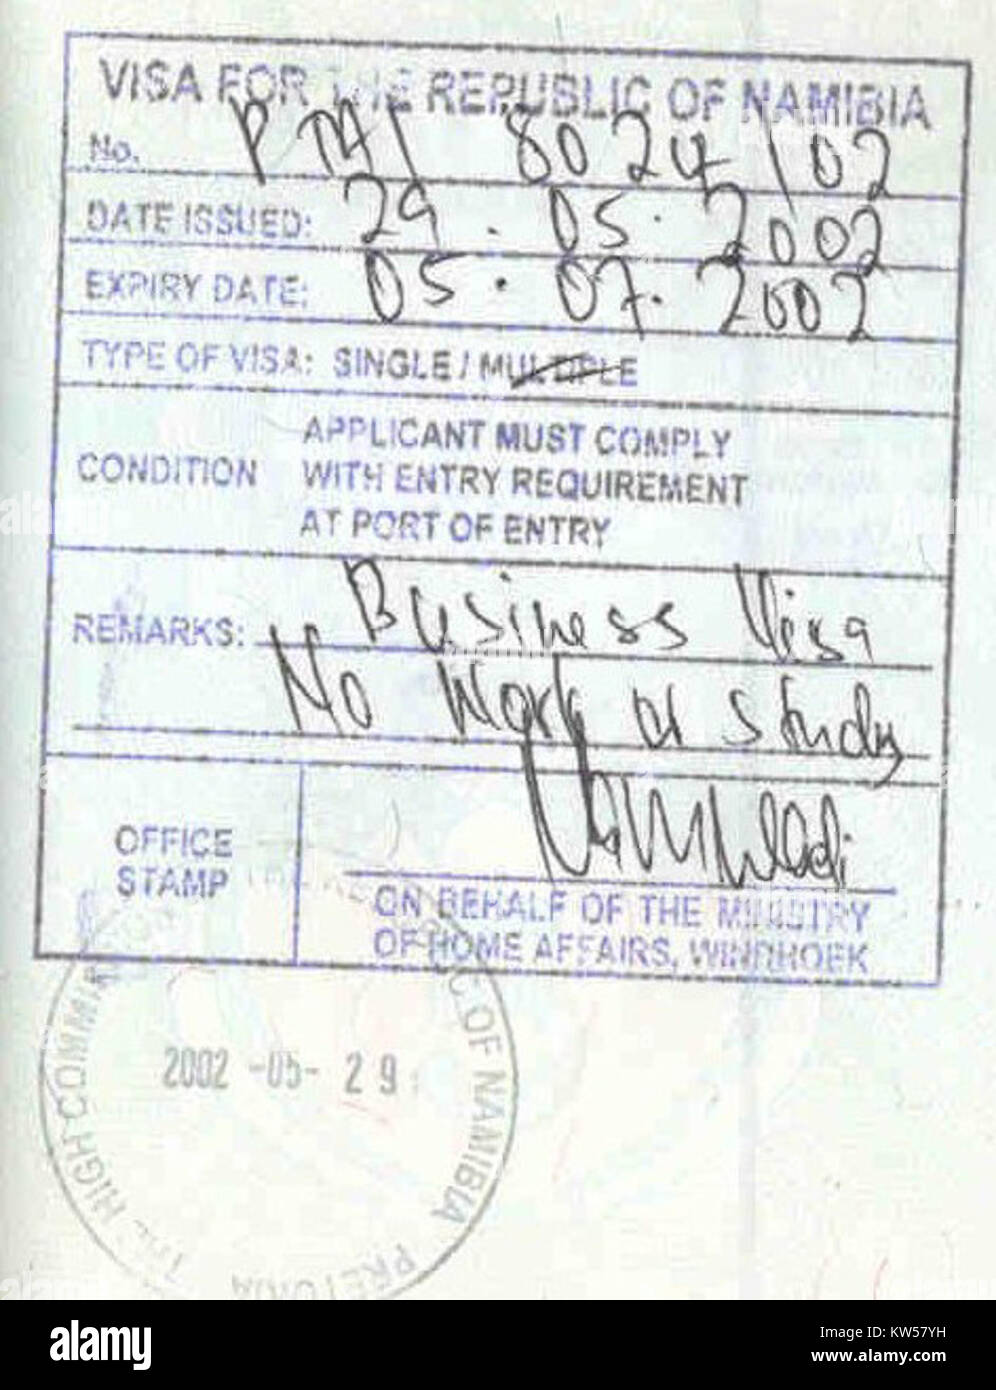 VISA FOR THE REPUBLIC OF NAMIBIA
No. PTA/ 8024/02
DATE ISSUED: 29.05.2002
EXPIRY DATE: 05.07.2002
TYPE OF VISA: SINGLE / MULTIPLE
CONDITION APPLICANT MUST COMPLY
WITH ENTRY REQUIREMENT
AT PORT OF ENTRY
REMARKS: Business Visa
No Work or study
OFFICE
STAMP
ON BEHALF OF THE MINISTRY
OF HOME AFFAIRS, WINDHOEK
THE HIGH COMMISSION OF THE REPUBLIC OF NAMIBIA
2002 -05- 29
PRETORIA
alamy
Image ID: KW57YH
www.alamy.com